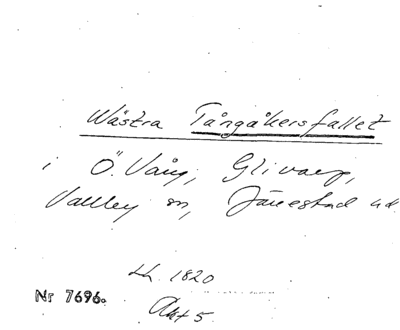 Wästra Tångåkersfallet
i Ö. Vång, Glivarp,
Valley m, Jänestad
1820
Nr 7696.
Akt 5.